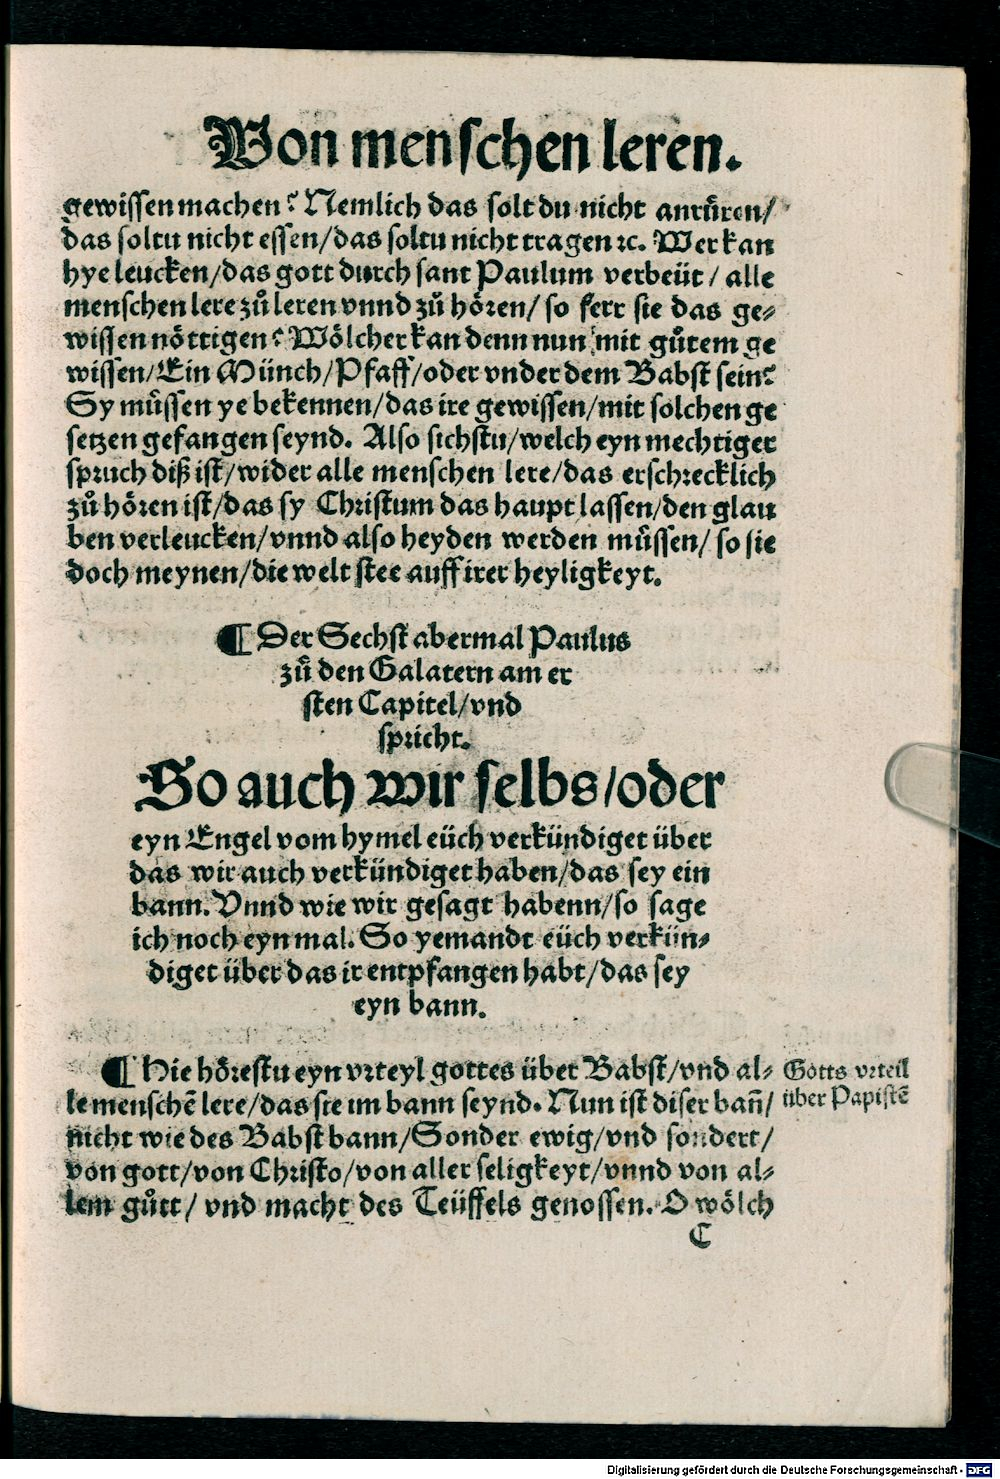 Von menschen leren.
gewissen machen? Nemlich das solt du nicht anrůren/
das soltu nicht essen/das soltu nicht tragen ⁊c. Wer kan
hye leucken/das gott durch sant Paulum verbeüt/ alle
menschen lere zů leren vnnd zů hören/ so ferr sie das ge⸗
wissen nöttigen? Wölcher kan denn nun mit gůtem ge
wissen/Ein Münch/Pfaff/oder vnder dem Babst sein?
Sy můssen ye bekennen/das ire gewissen/mit solchen ge
setzen gefangen seynd. Also sichstu/welch eyn mechtiger
spruch diß ist/wider alle menschen lere/das erschrecklich
zů hören ist/das sy Christum das haupt lassen/den glau
ben verleucken/vnnd also heyden werden můssen/ so sie
doch meynen/die welt stee auff irer heyligkeyt.
¶ Der Sechst abermal Paulus
zů den Galatern am er
sten Capitel/vnd
spricht.
So auch wir selbs/oder
eyn Engel vom hymel eüch verkündiget über
das wir auch verkündiget haben/das sey ein
bann. Vnnd wie wir gesagt habenn/so sage
ich noch eyn mal. So yemandt eüch verkün⸗
diget über das ir entpfangen habt/das sey
eyn bann.
¶ Hie hörestu eyn vrteyl gottes über Babst/vnd al⸗
le menschē lere/das sie im bann seynd. Nun ist diser bañ/
nicht wie des Babst bann/Sonder ewig/vnd sondert/
von gott/von Christo/von aller seligkeyt/vnnd von al⸗
lem gůtt/ vnd macht des Teüffels genossen. O wölch
C
Gotts vrteil
über Papistē
Digitalisierung gefördert durch die Deutsche Forschungsgemeinschaft - DFG